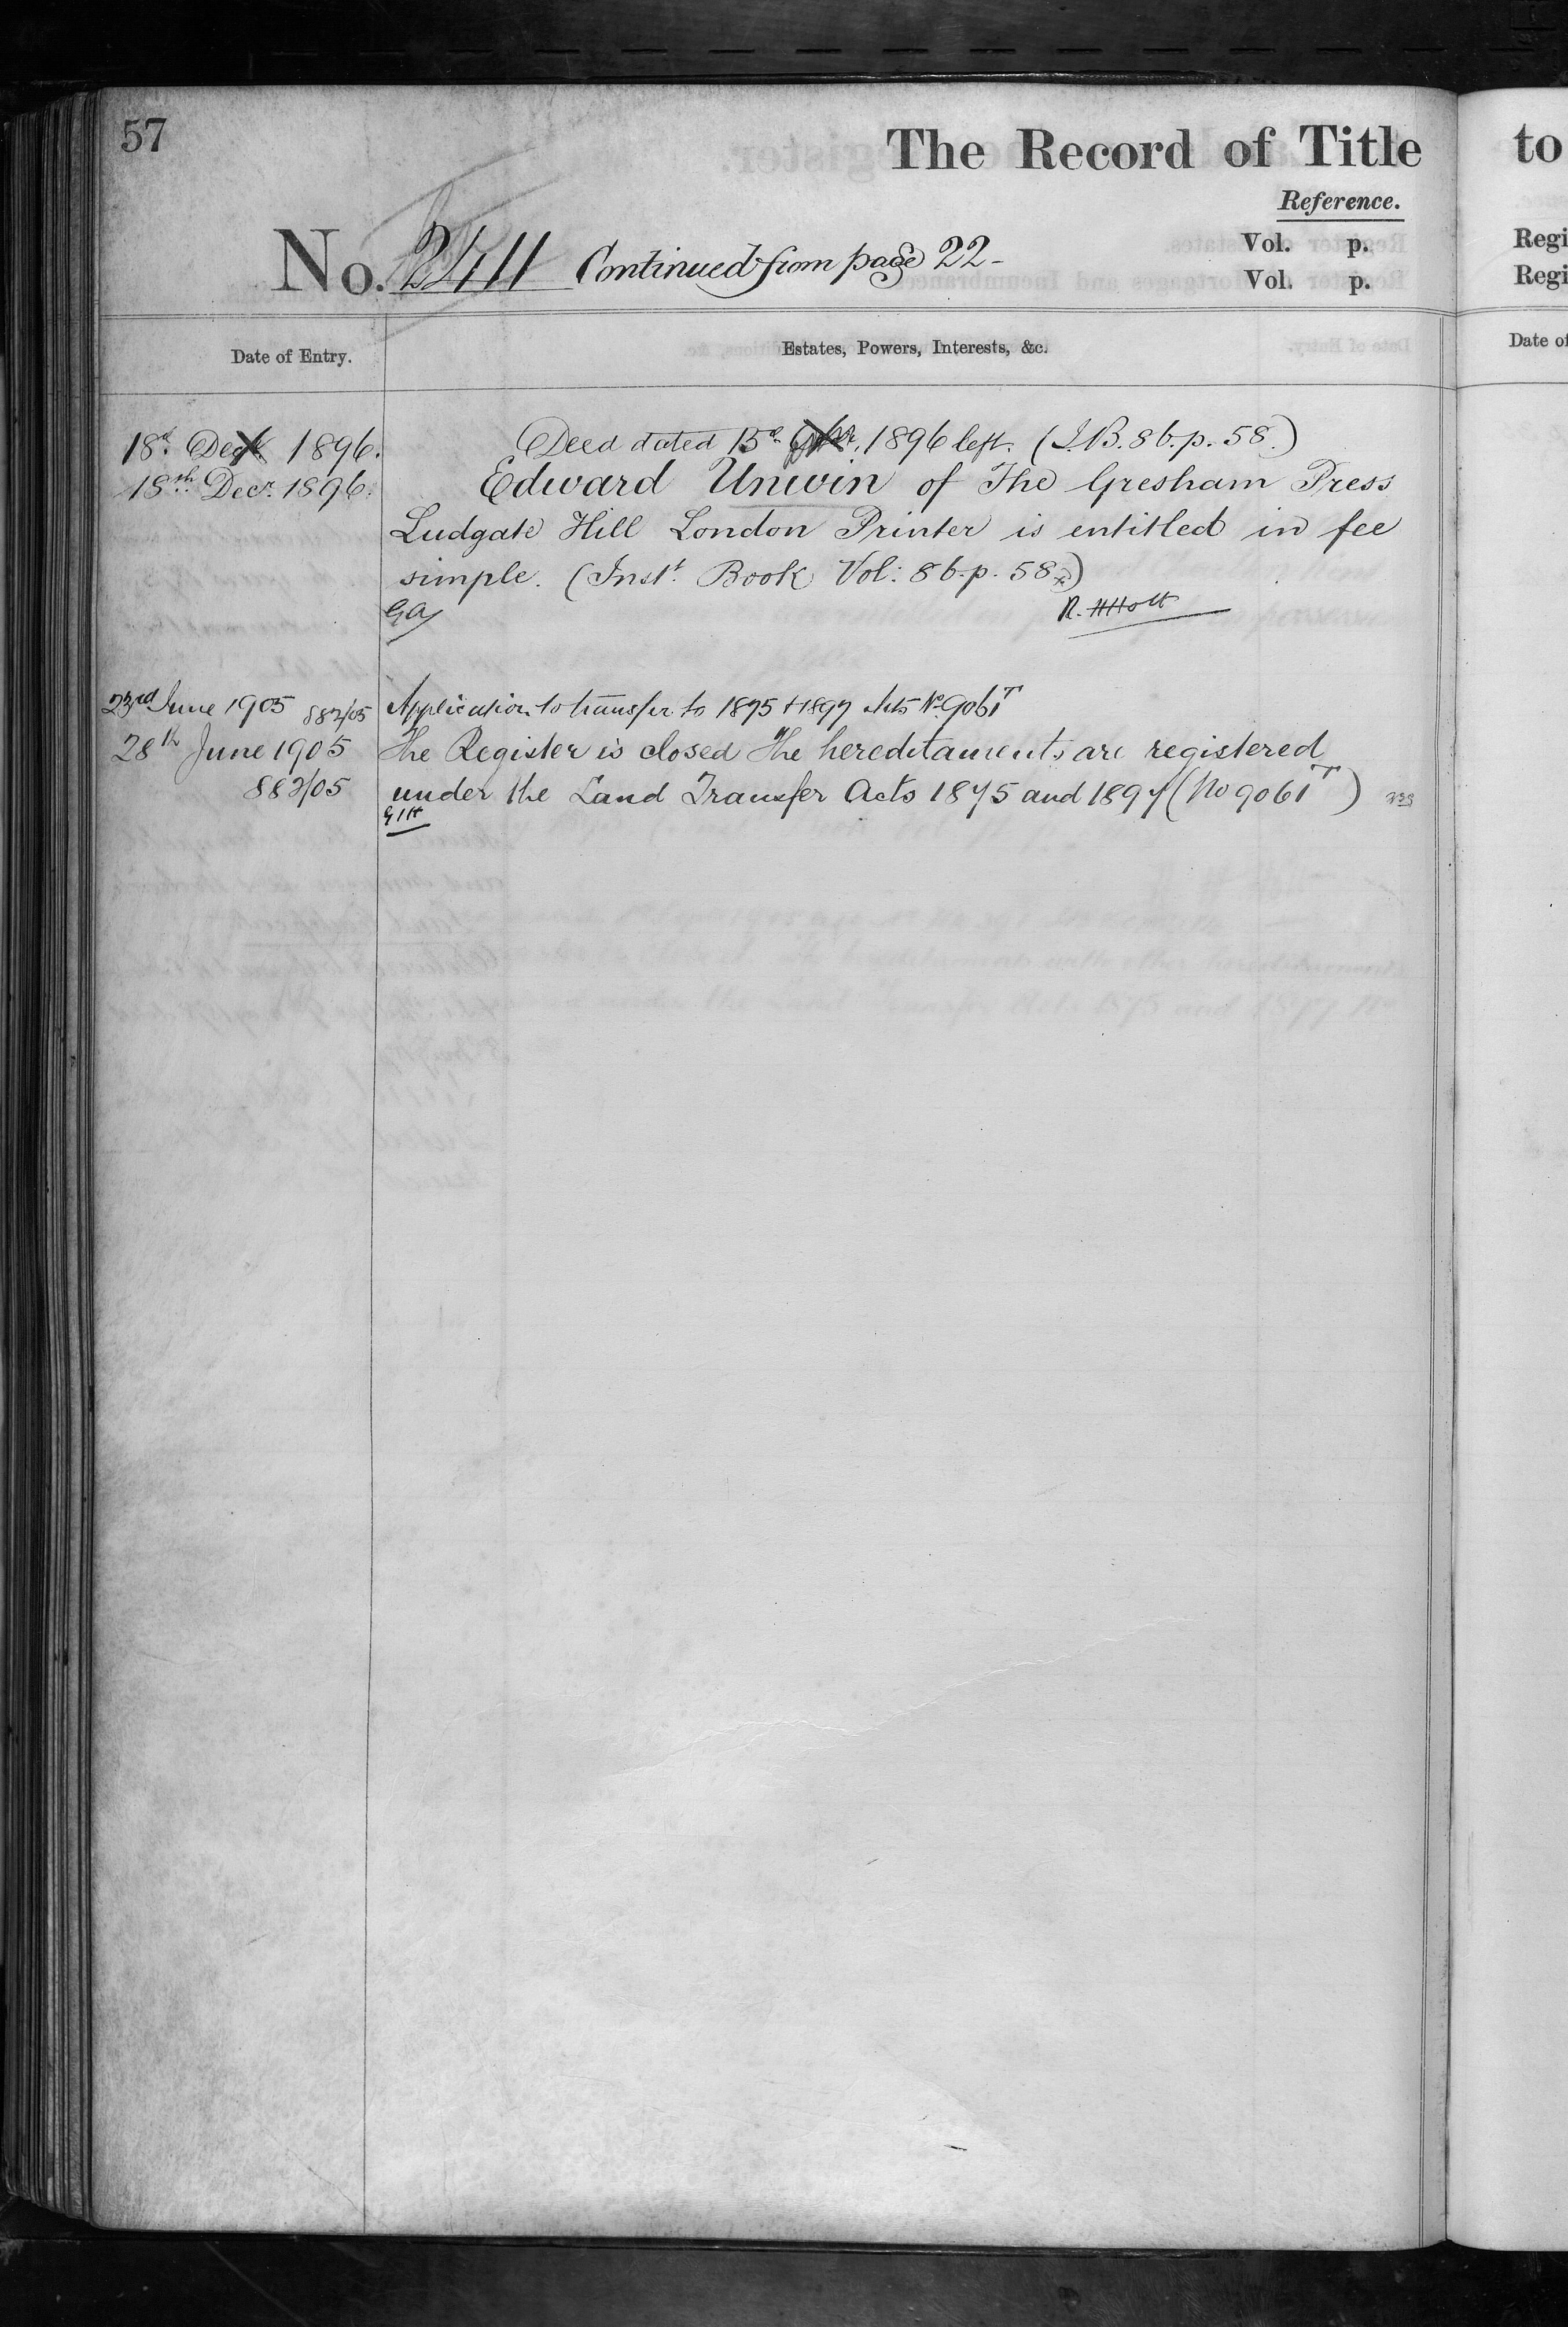 57
The Record of Title
to
Reference.
No. 2411 Continued from page 22-
Vol. p.
Vol. p.
Regi
Regi
Date of Entry.
Estates, Powers, Interests, &c.
Date of
18th Decr 1896. Deed dated 15th 1896 left. (I.B. 86. p. 58.)
18th Decr. 1896. Edward Unwin of The Gresham Press
Ludgate Hill London Printer is entitled in fee
simple. (Inst. Book Vol: 86. p. 58.)
GA R. H Holt
23rd June 1905 882/05 Application to transfer to 1875 + 1897 Acts No 9061T
28th June 1905 The Register is closed The hereditaments are registered
882/05 under the Land Transfer Acts 1875 and 1897 (No 9061T)